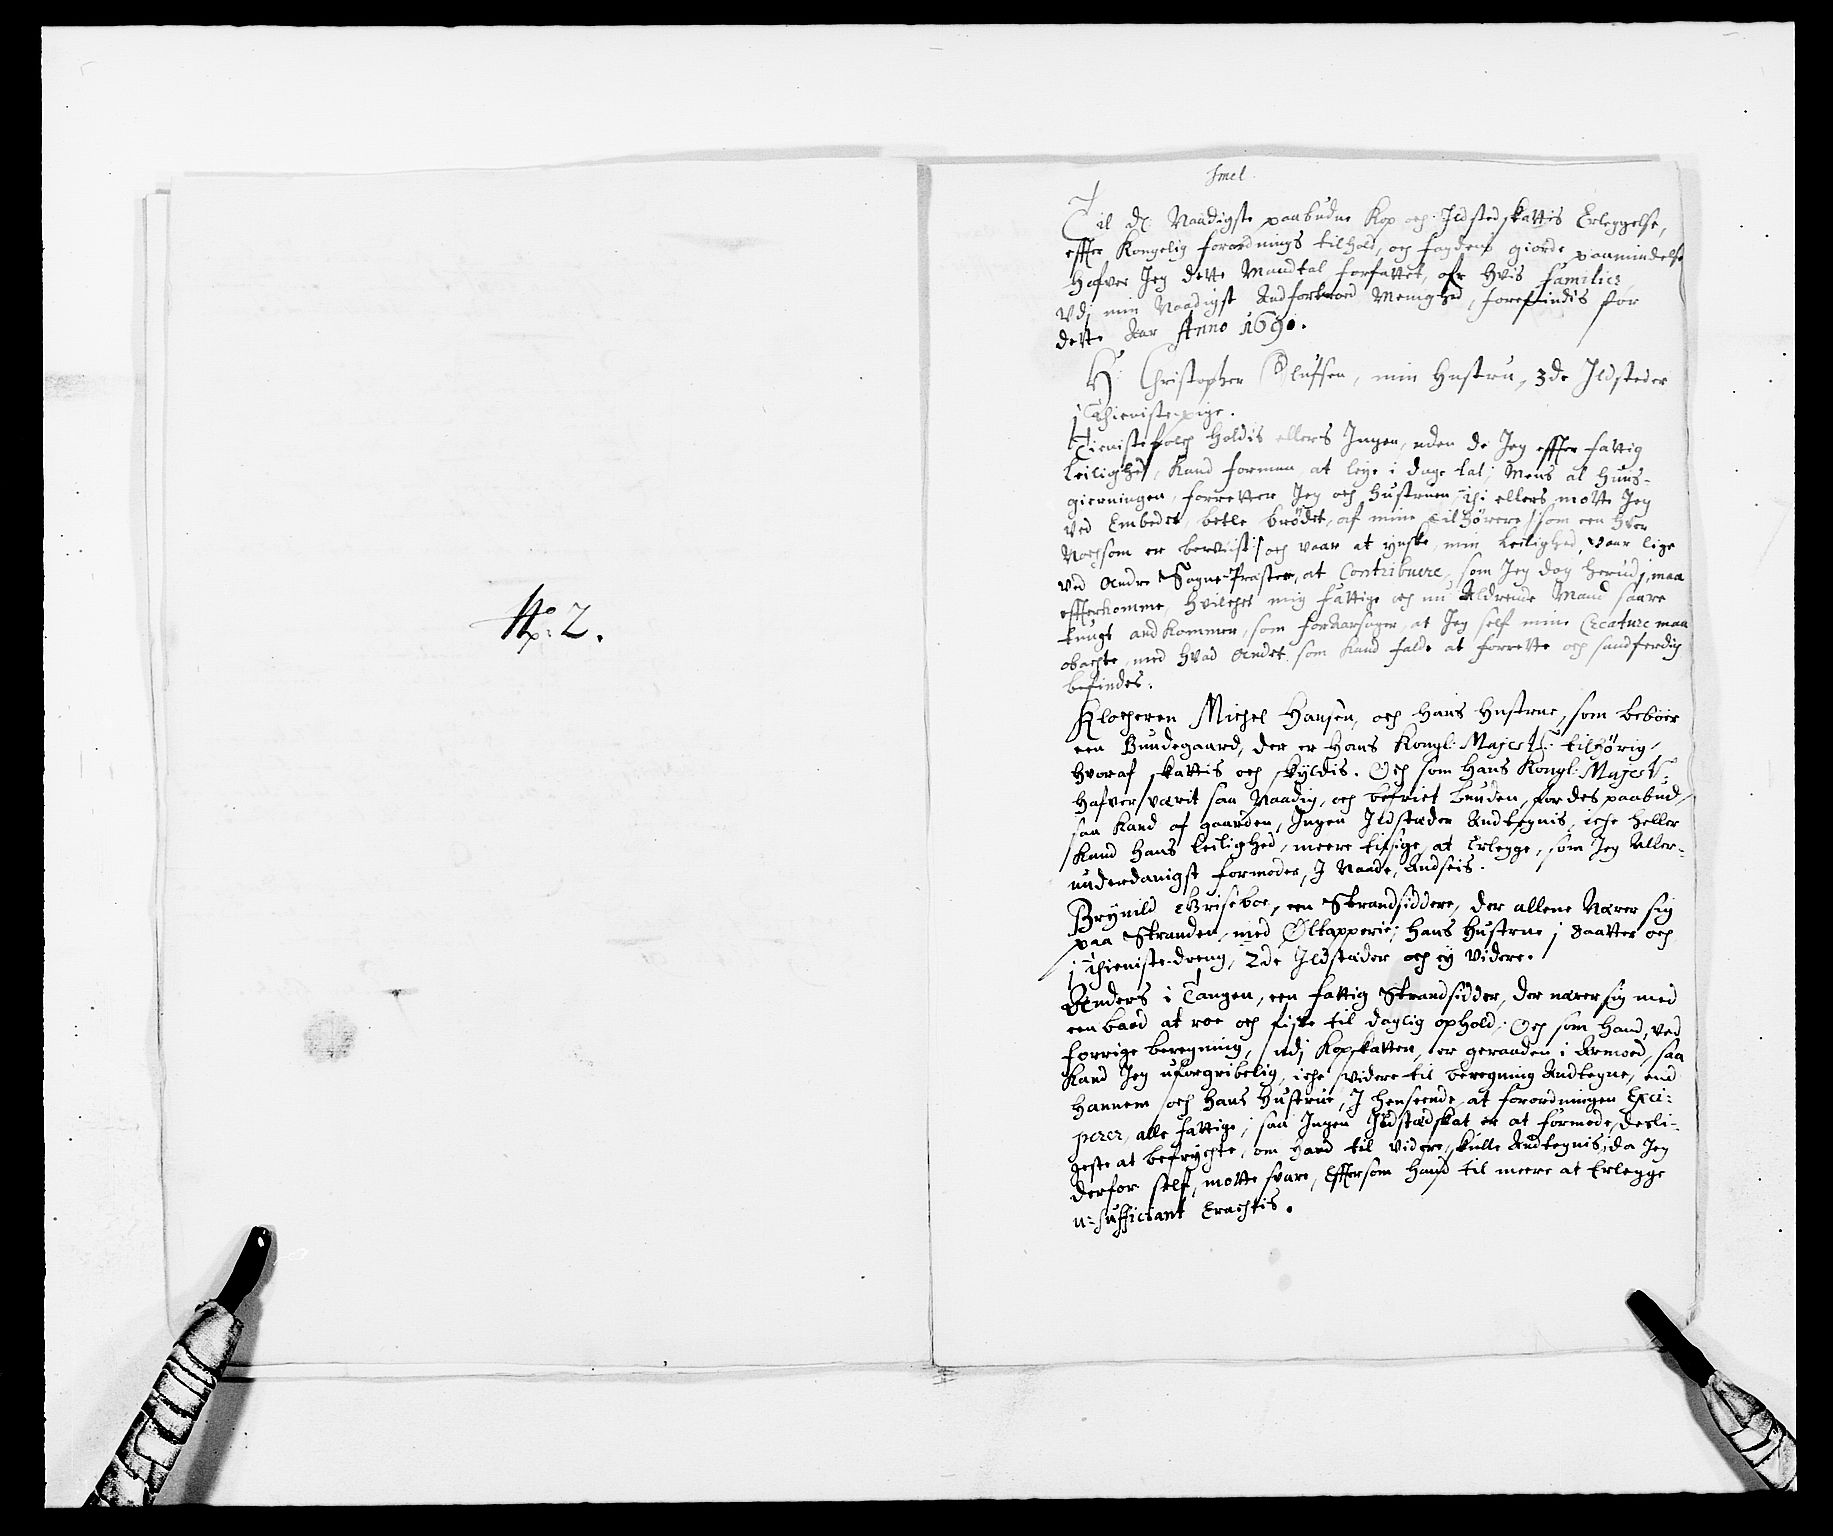 No: 2.
Til dj Naadigste paabudne Kop och Ildstedskattis Erleggelse,
effter Kongelig forordnings tilhold, och fogdens giorde paamindelse
Hafver Jeg dette Mandtal forfattet, ofr hvis Familier,
udj min Naadigst Andfortroed Menighed, forefindis for
dette Aar Anno 1690.
Hr Christopher Olufsen, min Hustru, 3de Ildsteder
j Thienistepige.
Tienistefolch holdis ellers Ingen, uden de Jeg effter fattig
Leilighed, Kand forman at leye i dage tal; Mens al Huus-
gierningen, forretter Jeg och Hustruen, ellers motte Jeg
ved Embedet betle brødet, af mine Tilhörere /: som een hver
Nochsom er beviist :/ och vaar at ynske, min Leilighed, vaar lige
ved Andre Sogne-Præster, at Contribuere, som Jeg dog herudj, maa
effterkomme, Hvilchet mig fattige och nu Aldrende Mand saare
tungt andkommer, som foraarsager, at Jeg self mine Creature maa
obachte, med hvad Andet som Kand falde at forrette och sandferdig
befindes.
Klocheren Michel Hansen, och Hans Hustrue, som beboer
een Bundegaard, der er Hans Kongl: Majestt: tilhörig,
hvoraf skattis och skyldis. Och som Hans Kongl: Majestt:
Hafver værit saa Naadig, och befriet bunden, for des paabud,
saa Kand af gaarden, Ingen Ildstæder Andtegnis, iche heller
Kand Hans Leilighed, meere tilsige, at Erlegge, som Jeg Aller-
underdanigst formoder, I Naade, Andseis.
Brynild Griseboe, een Strandsiddere, der allene Nærer sig
paa Stranden, med Øltapperie; Hans Hustrue j Daatter och
j Thieniste-dreng, 2de Ildstæder och ej videre.
Anders i Tangen, een fattig Strandsidder, der nærer sig med
een baad at roe och fiske til daglig ophold; Och som Hand, ved
forrige beregning, udj Kopskatten, er geraaden i Armoed, saa
Kand Jeg uforgribelig, iche videre til beregning Andtegne, end
Hannem och Hans Hustrue, I henseende, at forordningen Exci-
perer, alle fattige; saa Ingen Ildstædskat er at formode, desli-
geste at befrychte, om Hand til videre, skulle Andtegnis, da Jeg
derfor self, motte svare, Efftersom Hand til meere at Erlegge
u-sufficiant Erachtis.